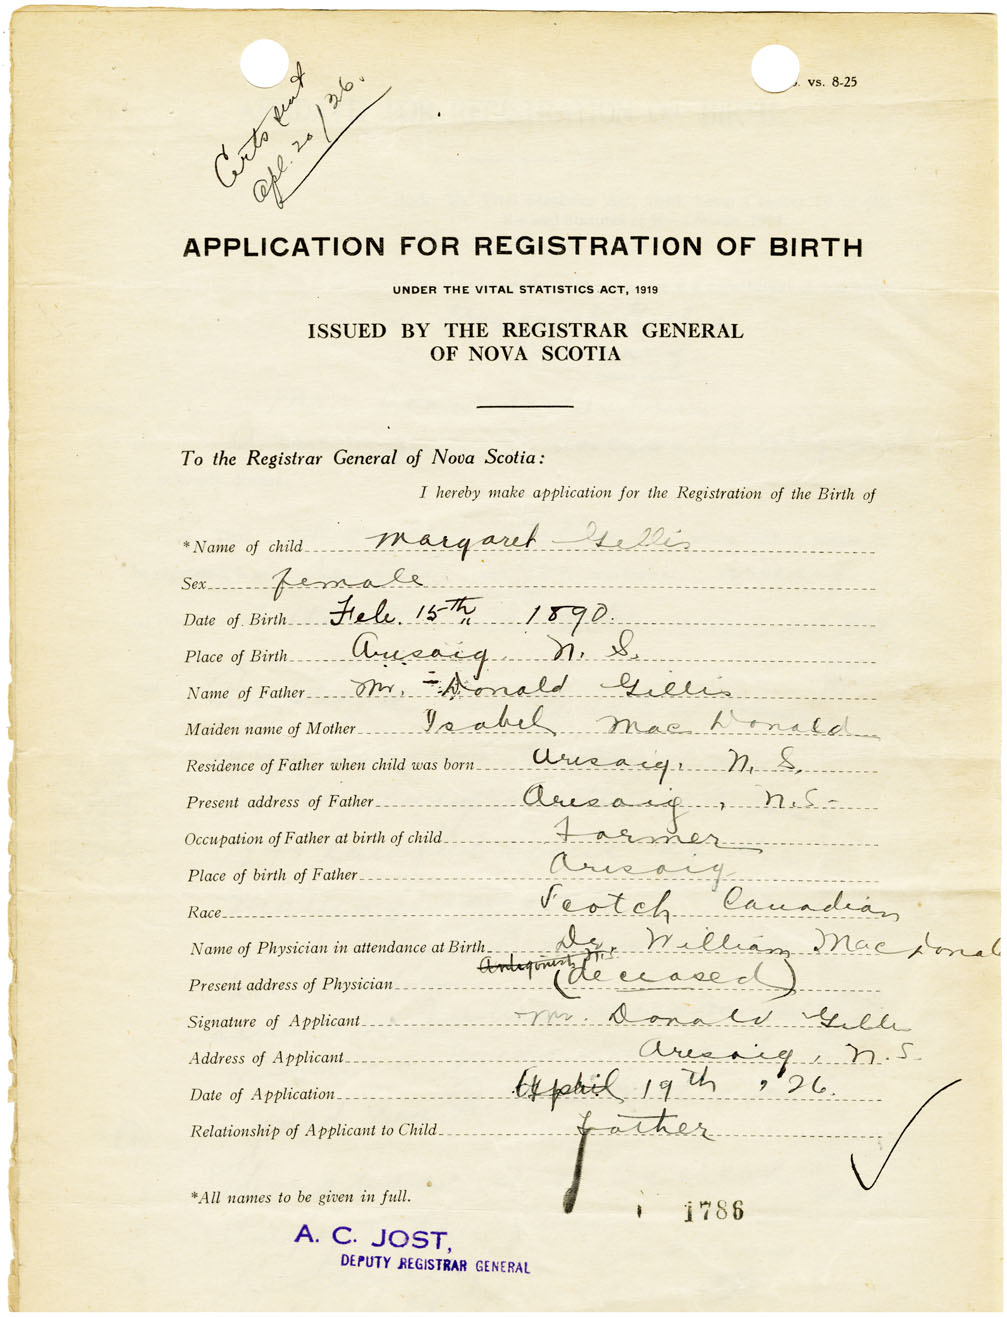 Certs sent
Apl. 20/26.
. vs. 8-25
APPLICATION FOR REGISTRATION OF BIRTH
UNDER THE VITAL STATISTICS ACT, 1919
ISSUED BY THE REGISTRAR GENERAL
OF NOVA SCOTIA
To the Registrar General of Nova Scotia:
I hereby make application for the Registration of the Birth of
*Name of child Margaret Gillis
Sex female
Date of Birth Feb. 15th 1890.
Place of Birth Arisaig N. S.
Name of Father Mr. Donald Gillis
Maiden name of Mother Isabel MacDonald
Residence of Father when child was born Arisaig, N. S.
Present address of Father Arisaig, N.S.
Occupation of Father at birth of child Farmer
Place of birth of Father Arisaig
Race Scotch Canadian
Name of Physician in attendance at Birth Dr. William MacDonal
Antigonish N.S.
Present address of Physician (deceased)
Signature of Applicant Mr. Donald Gillis
Address of Applicant Arisaig, N. S.
Date of Application April 19th, '26.
Relationship of Applicant to Child Father
*All names to be given in full.
1786
A. C. JOST,
DEPUTY REGISTRAR GENERAL